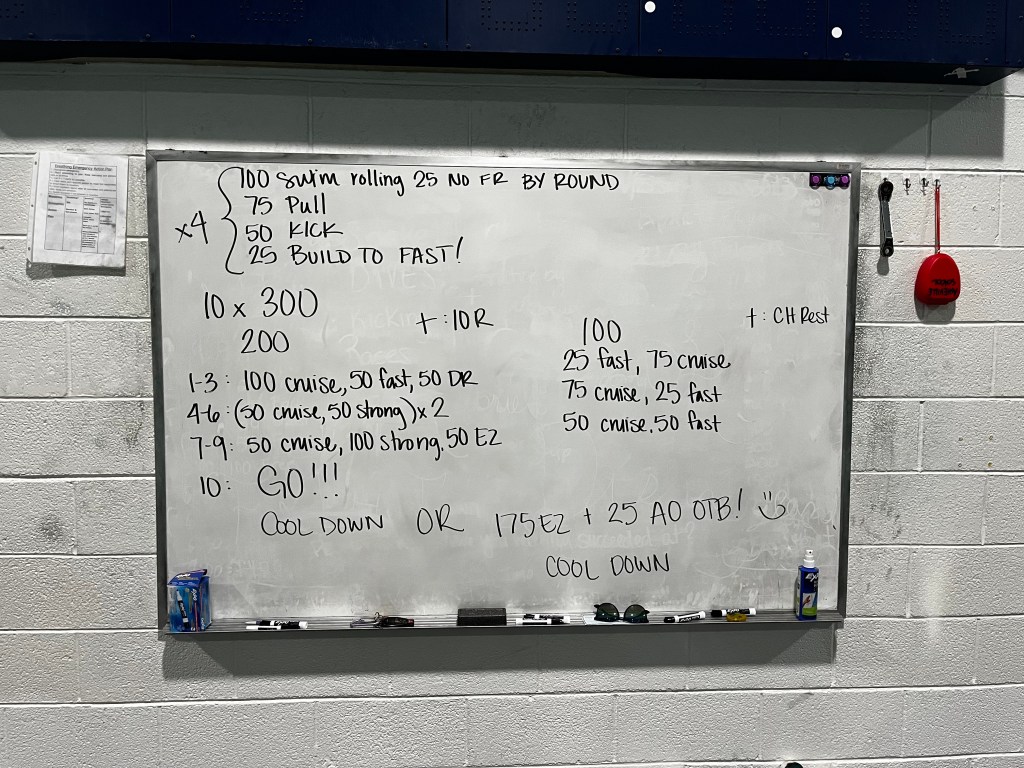 100 Swim rolling 25 NO FR BY ROUND
75 Pull
x4
50 KICK
25 BUILD TO FAST!
10 x 300
200
+ :10 R
1-3: 100 cruise, 50 fast, 50 DR
4-6: (50 cruise, 50 strong) x 2
7-9: 50 cruise, 100 strong, 50 EZ
10: GO!!!
100
+ : CH Rest
25 fast, 75 cruise
75 cruise, 25 fast
50 cruise, 50 fast
COOL DOWN OR 175 EZ + 25 AO OTB!
COOL DOWN